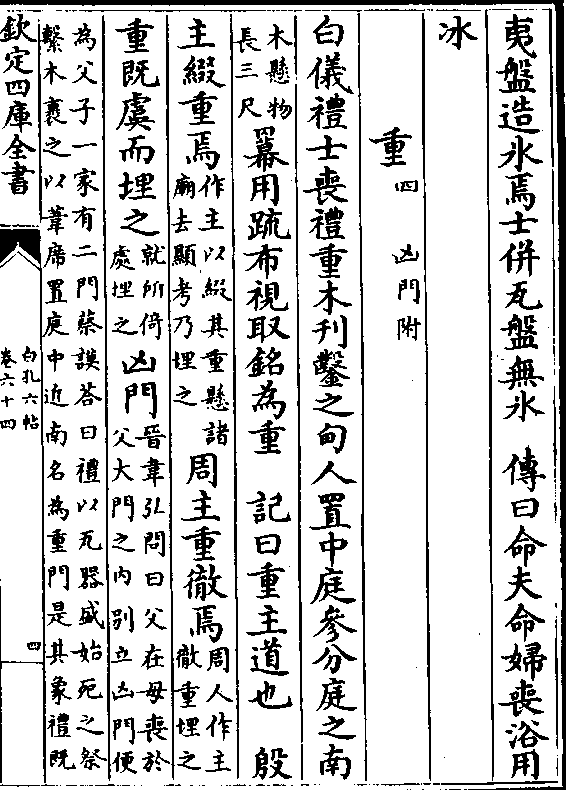 夷盤造冰焉士併瓦盤無冰　傳曰命夫命婦喪浴用
冰
重四　凶門附
白儀禮士喪禮重木刋鑿之甸人置中庭參分庭之南
木懸物
長三尺
冪用疏布視取銘為重　記曰重主道也　殷
主綴重焉
作主以綴其重懸諸
廟去顯考乃埋之
周主重徹焉
周人作主
徹重埋之
重既虞而埋之
就所倚
處埋之
凶門
晉韋引問曰父在母喪於
父大門之内别立凶門便
為父子一家有二門蔡謨答曰禮以瓦器盛始死之祭
繫木裹之以葦席置庭中近南名為重門是其象禮既
欽定四庫全書
白孔六帖
卷六十四
四